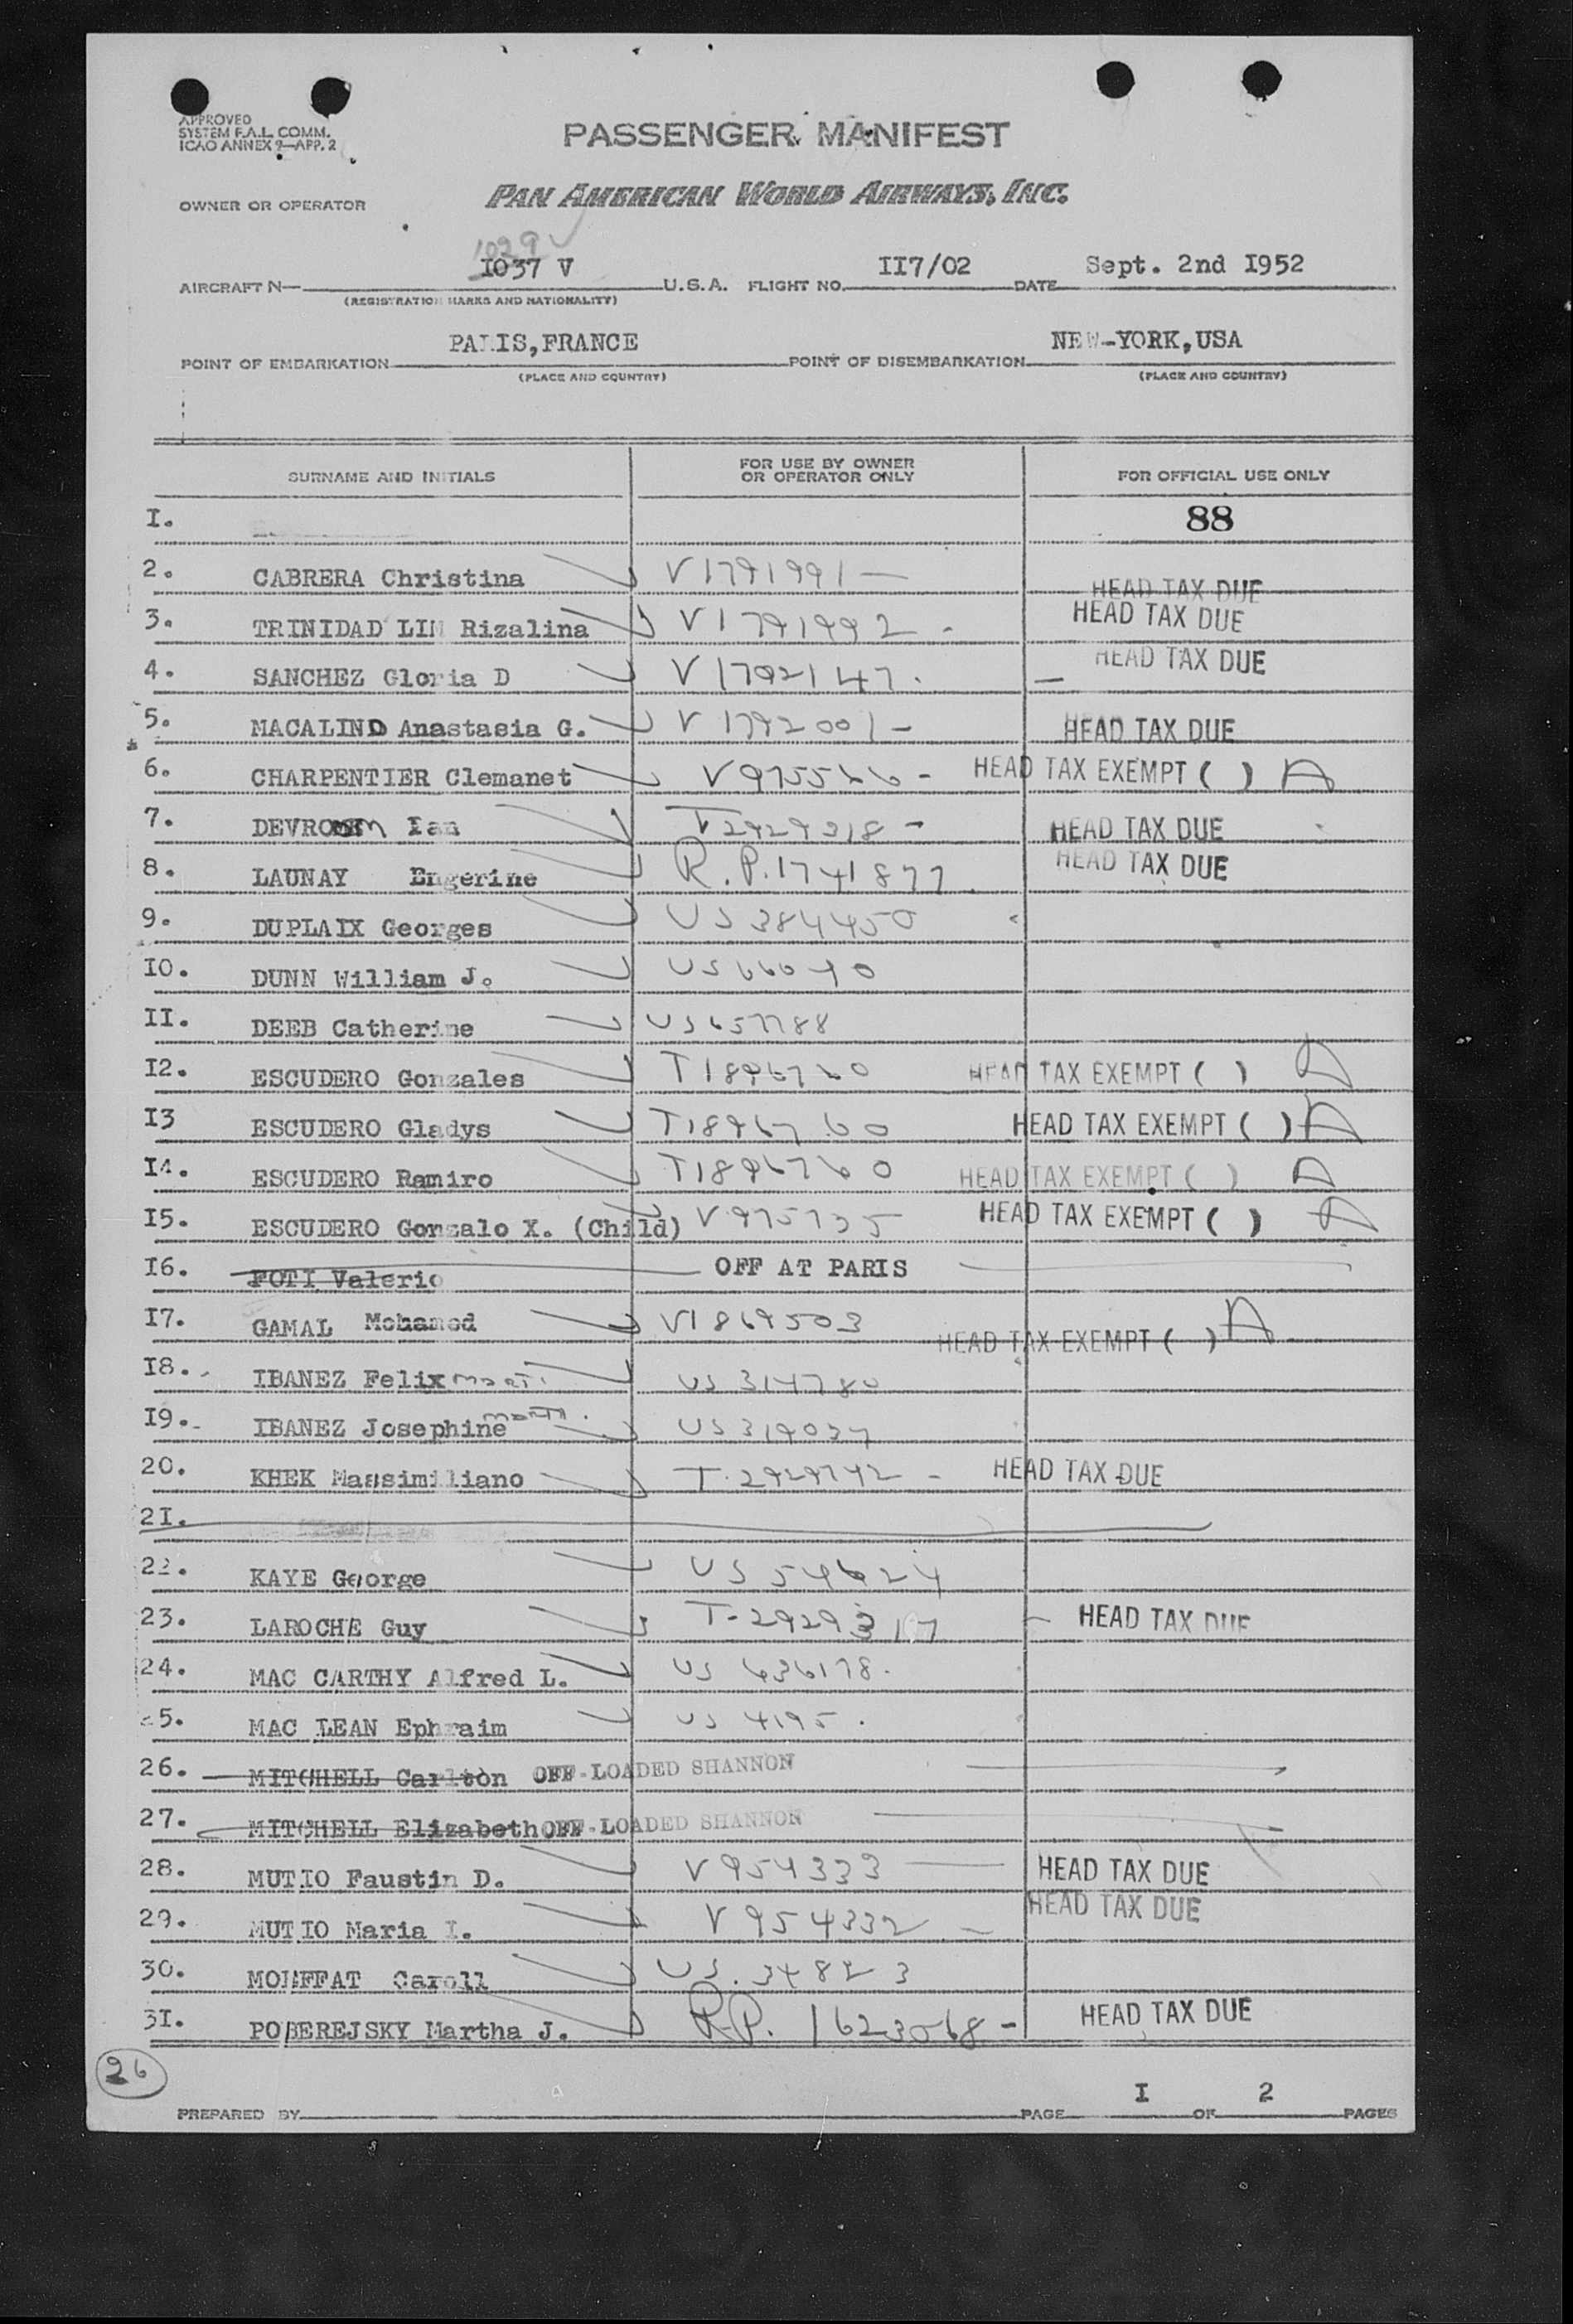 APPROVED
SYSTEM F.A.L. COMM.
ICAO ANNEX 9—APP. 2
PASSENGER MANIFEST
OWNER OR OPERATOR
PAN AMERICAN WORLD AIRWAYS, INC.
1029
AIRCRAFT N— I037 V U.S.A. FLIGHT NO. II7/02 DATE Sept. 2nd I952
(REGISTRATION MARKS AND NATIONALITY)
POINT OF EMBARKATION PARIS,FRANCE POINT OF DISEMBARKATION NEW-YORK,USA
(PLACE AND COUNTRY) (PLACE AND COUNTRY)
SURNAME AND INITIALS FOR USE BY OWNER OR OPERATOR ONLY FOR OFFICIAL USE ONLY
I. 88
2. CABRERA Christina V1791991 HEAD TAX DUE
3. TRINIDAD LIM Rizalina V1791992 - HEAD TAX DUE
4. SANCHEZ Gloria D V1792147. HEAD TAX DUE
5. MACALIND Anastasia G. V1792001 - HEAD TAX DUE
6. CHARPENTIER Clemanet V975566 - HEAD TAX EXEMPT ( ) A
7. Ian T2929318 - HEAD TAX DUE
8. LAUNAY Engerine R.P.1741877 HEAD TAX DUE
9. DUPLAIX Georges US384450
I0. DUNN William J. US66040
II. DEEB Catherine US657788
I2. ESCUDERO Gonzales T1896760 HEAD TAX EXEMPT ( ) A
I3 ESCUDERO Gladys T1896760 HEAD TAX EXEMPT ( ) A
I4. ESCUDERO Ramiro T1896760 HEAD TAX EXEMPT ( ) A
I5. ESCUDERO Gonzalo X. (Child) V975735 HEAD TAX EXEMPT ( ) A
I6. FOTI Valerio OFF AT PARIS
I7. GAMAL Mohamed V1869503 HEAD TAX EXEMPT ( ) A
I8. IBANEZ Felix MARTI US 314780
I9. IBANEZ Josephine MARTI. US319037
20. KHEK Massimiliano T.2929742 - HEAD TAX DUE
2I.
22. KAYE George US 54624
23. LAROCHE Guy T-2929317 - HEAD TAX DUE
24. MAC CARTHY Alfred L. US 636178.
25. MAC LEAN Ephraim US 4195.
26. MITCHELL Carlton OFF-LOADED SHANNON
27. MITCHELL Elizabeth OFF-LOADED SHANNON
28. MUTIO Faustin D. V954333 HEAD TAX DUE
29. MUTIO Maria I. V954332 - HEAD TAX DUE
30. MOUFFAT Caroll US.34823
3I. POBEREJSKY Martha J. R.P. 1623068 - HEAD TAX DUE
26
PREPARED BY PAGE I OF 2 PAGES